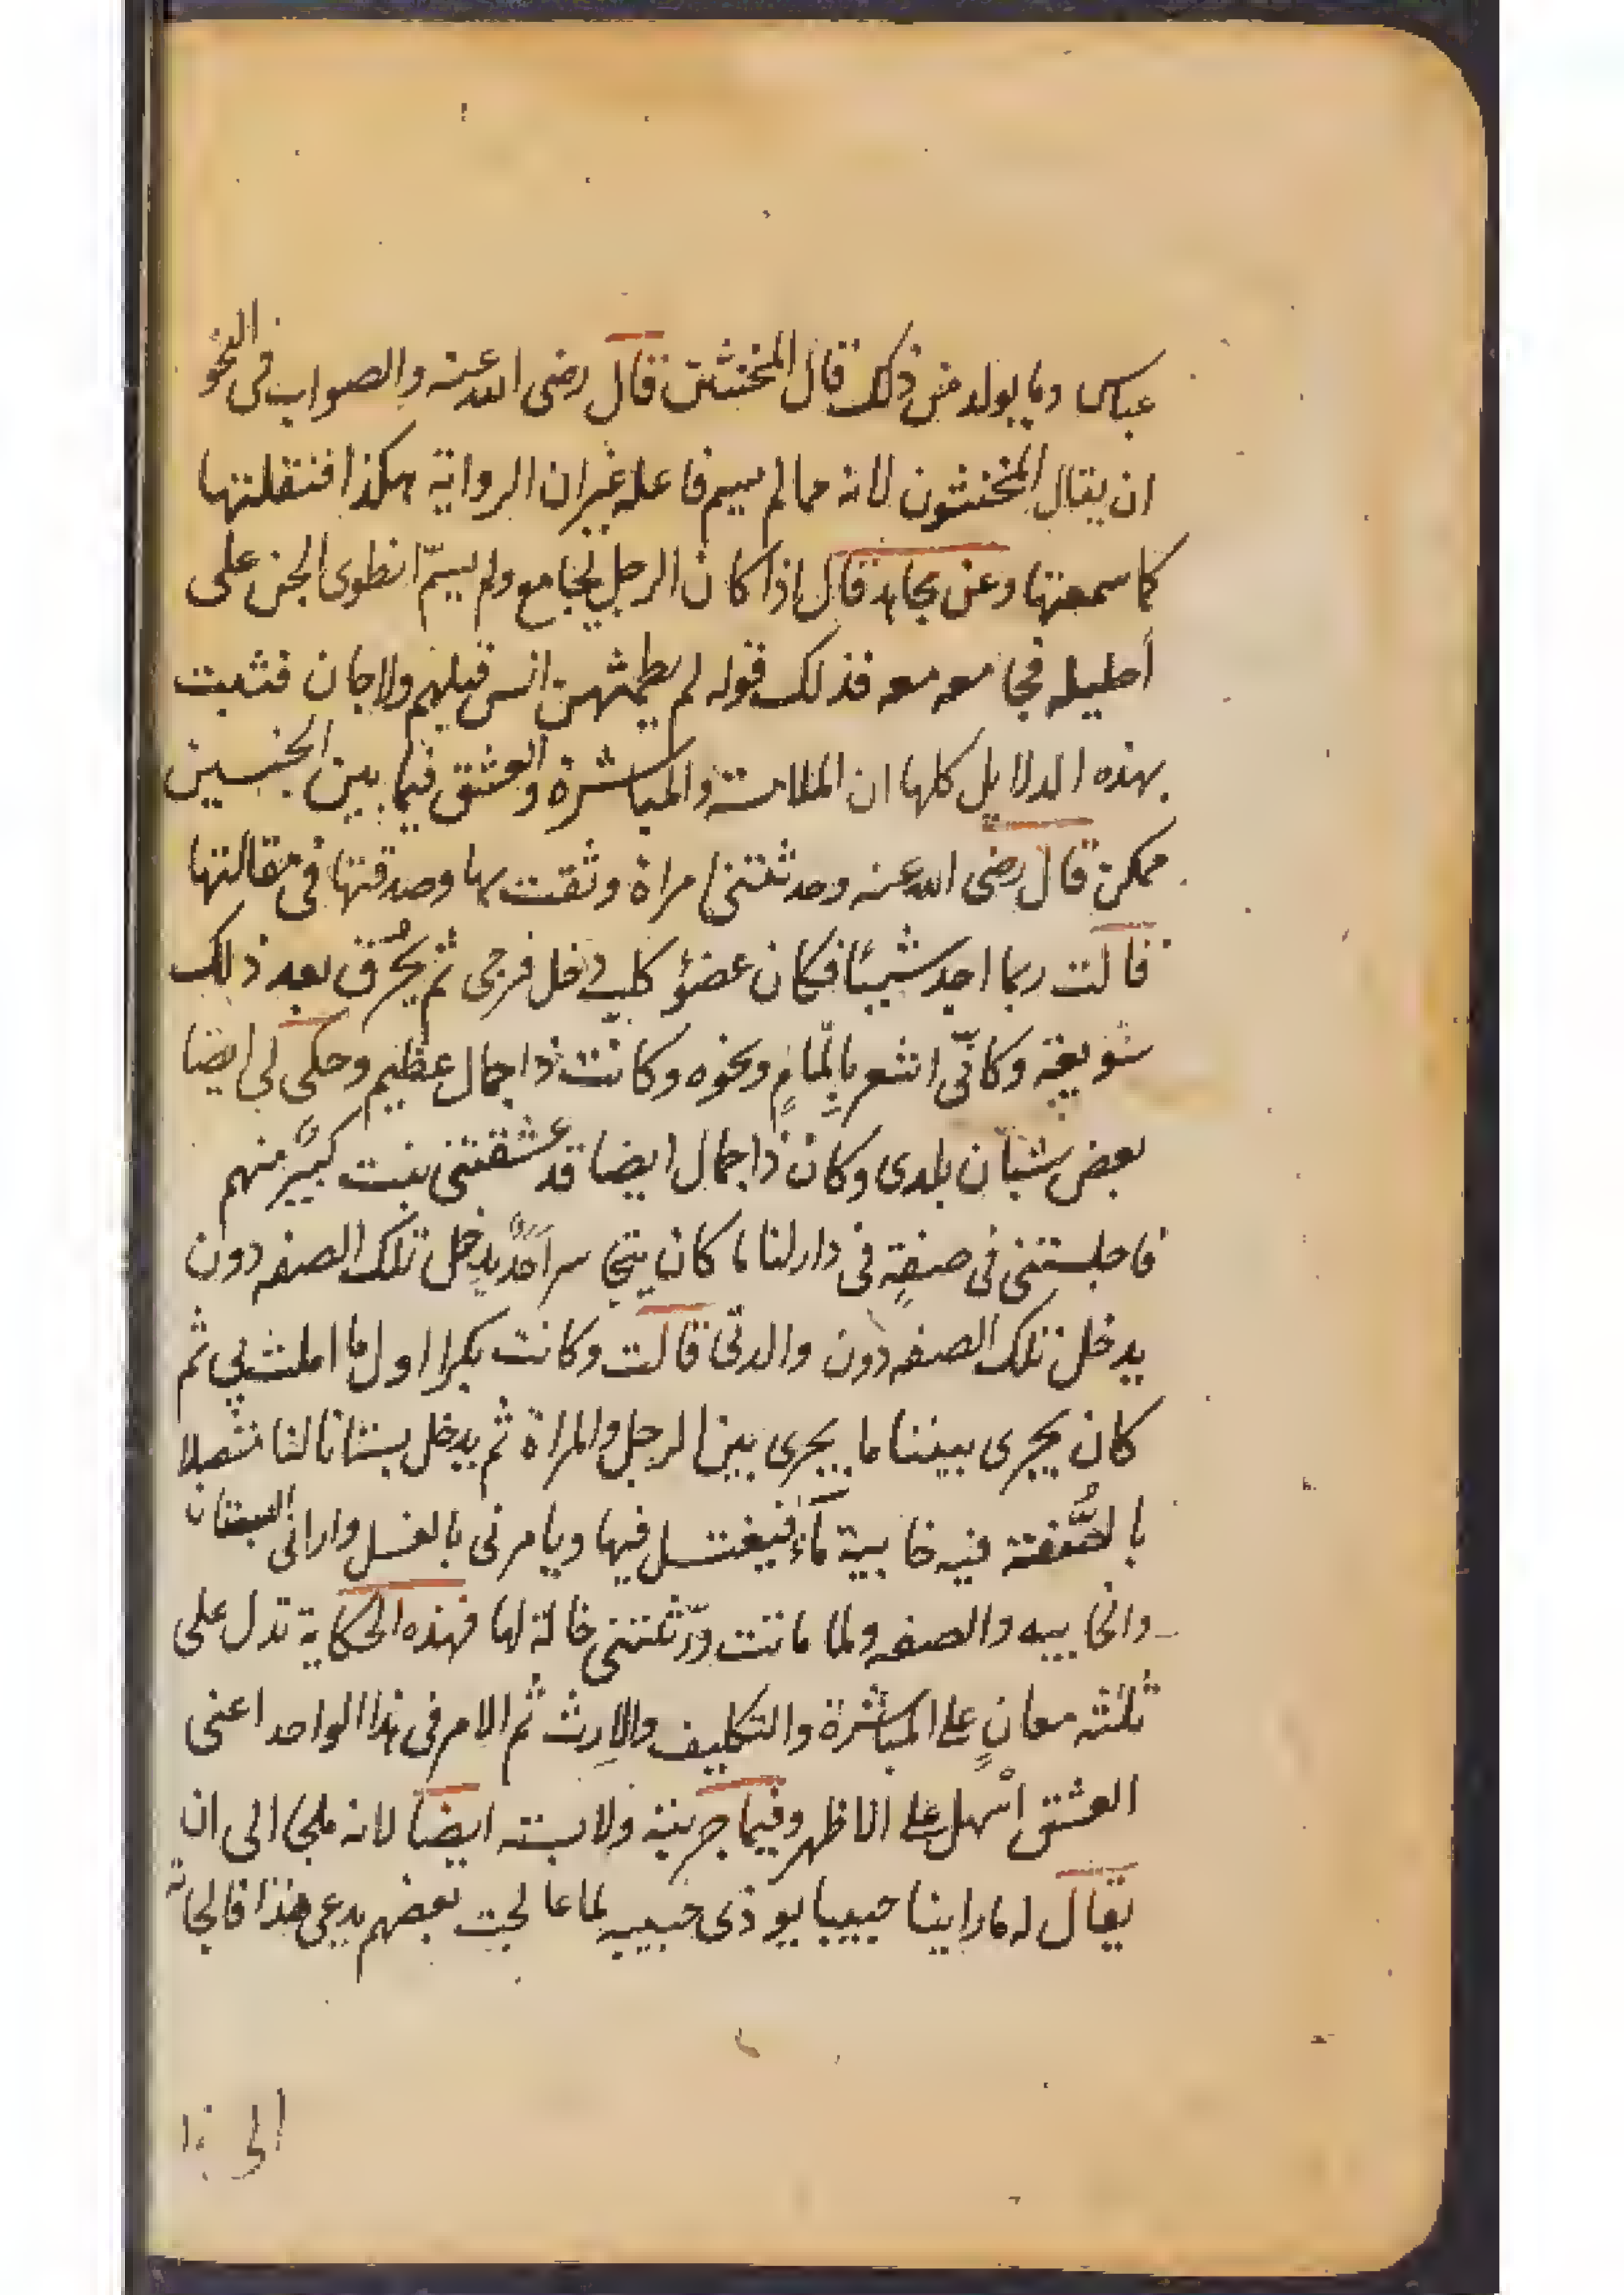 عباس وما يولد من ذلك قال المخنثين قال رضى الله عنه والصواب فى النحو
ان يقال المخنثون لانه مما لم يسم فاعله غير ان الرواية هكذا فنقلتها
كما سمعتها وعن مجاهد قال اذا كان الرجل يجامع ولم يسمّ انطوى الجن على
احليله فجامعه معه فذلك قوله لم يطمثهن انس قبلهم ولا جان فثبت
بهذه الدلايل كلها ان الملامسة والمباشرة والعشق فيما بين الجنسين
ممكن قال رضى الله عنه وحدثتنى امراة وثقت بها وصدقتها فى مقالتها
قالت ربما اجد شيئا فكان عضؤ كلب دخل فرجى ثم يُحرق بعد ذلك
سويعة وكانّى اشعر بالِمّامٍ ونحوه وكانت ذا جمال عظيم وحكى لى ايضا
بعض شبّان بلدى وكان ذا جمال ايضا قد عشقتنى بنت كبيرٍ منهم
فاجلستنى فى صفةٍ فى دار لنا ما كان يتجاسر احدٌ يدخل تلك الصفه دون
يدخل تلك الصفه دون والدتى قالت وكانت بكرا اول ما املت بى ثم
كان يجرى بيننا ما يجرى بين الرجل والمراة ثم يدخل بستانا لنا متصلا
بالصُّفة فيه خابية ماءٍ فيغتسل فيها ويامرنى بالغسل وارانى البستان
والخابيه والصفه ولما ماتت ورّثتنى خالة لها فهذه الحكاية تدل على
ثلثه معانٍ على المباشرة والتكليف والارث ثم الامر فى هذا الواحد اعنى
العشق اسهل على الاظهر وفيما جربته ولابسته ايضا لانه ملجا الى ان
يقال له ما راينا حبيبا يوذى حبيبه لما عالجت بعضهم يدعى هذا فالجاته
الى هذا